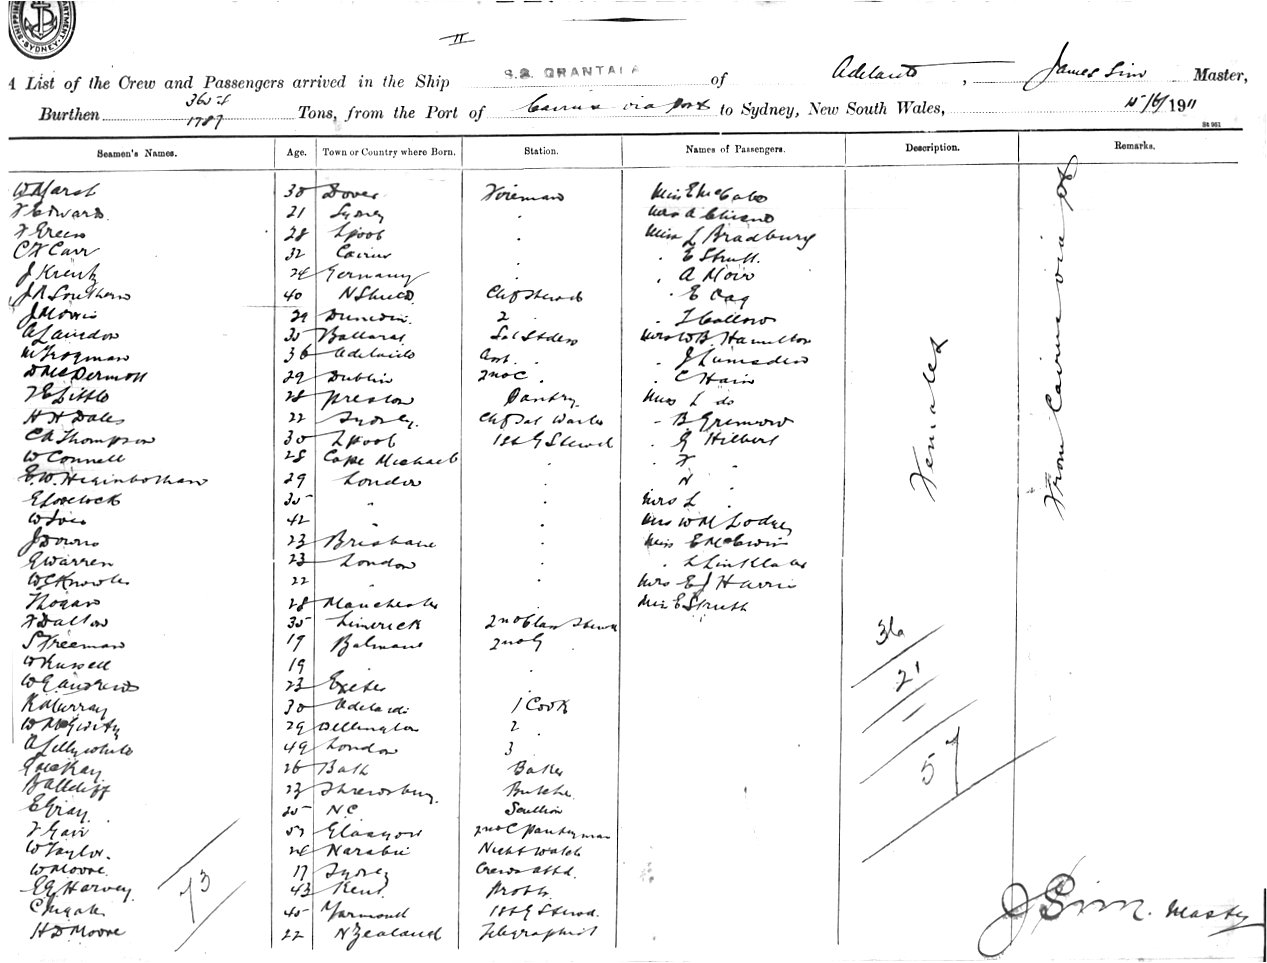 SHIPPING DEPARTMENT. SYDNEY
II
A List of the Crew and Passengers arrived in the Ship S.S. GRANTALA of Adelaide, James Sim Master,
Burthen 3655 1787 Tons, from the Port of Cairns via ports to Sydney, New South Wales, 15/6/1911
St 961
Seamen's Names. Age. Town or Country where Born. Station. Names of Passengers. Description. Remarks.
W Marsh 30 Dover Fireman Miss E McCabe
F Edward 21 Sydney " Mrs A
28 Lpool " Miss L Bradbury
C F Carr 32 Cairns " " E Strutt
J Krentz 24 Germany " " A Moir
J R Southern 40 N Shields Chf Steward " E Coq
J Morris 29 Dunedin 2 " " Callow
A Langdon 30 Ballarat Sal Stdess Mrs W B Hamilton
M Frogman 36 Adelaide Asst " " J Lumsden
D McDermott 29 Dublin 2nd C " " C Hain
F E Little 28 Preston Pantry Miss L do
H H Dales 22 Sydney Chf Sal Waiter " B Grimwood
C A Thompson 30 Lpool 1st G Steward " G Hilbert
W Connell 28 Cape Michael " " F "
E. W. Higinbotham 29 London " " N "
E Lovelock 35 " " Mrs L "
W 42 " " Mrs W M Lodge
J Downs 23 Brisbane " Miss E McEwin
G Warren 23 London " " L Linklater
W C Knowles 22 " " Mrs E J Harris
T Hogan 28 Manchester " Miss E Strutt
F Dalton 35 Limerick 2nd Class Steward
S Freeman 19 Balmain 2nd G
W Russell 19 " "
W G Andrews 23 Exeter "
R Murray 30 Adelaide 1 Cook
W McGivity 29 Wellington 2 "
A Lillywhite 49 London 3
McKay 26 Bath Baker
Ballcliff 23 Shrewsbury Butcher
E Gray 25 N.C. Scullion
F Gair 52 Glasgow 2nd C Pantryman
W Taylor 24 Narabri Night Watch
W Moore 17 Sydney Crews Attd.
E G Harvey 43 Kent
C 45 Yarmouth 1st G Steward
H D Moore 22 N Zealand Telegraphist
73
Females
36
21
57
From Cairns via
J Sim. Master